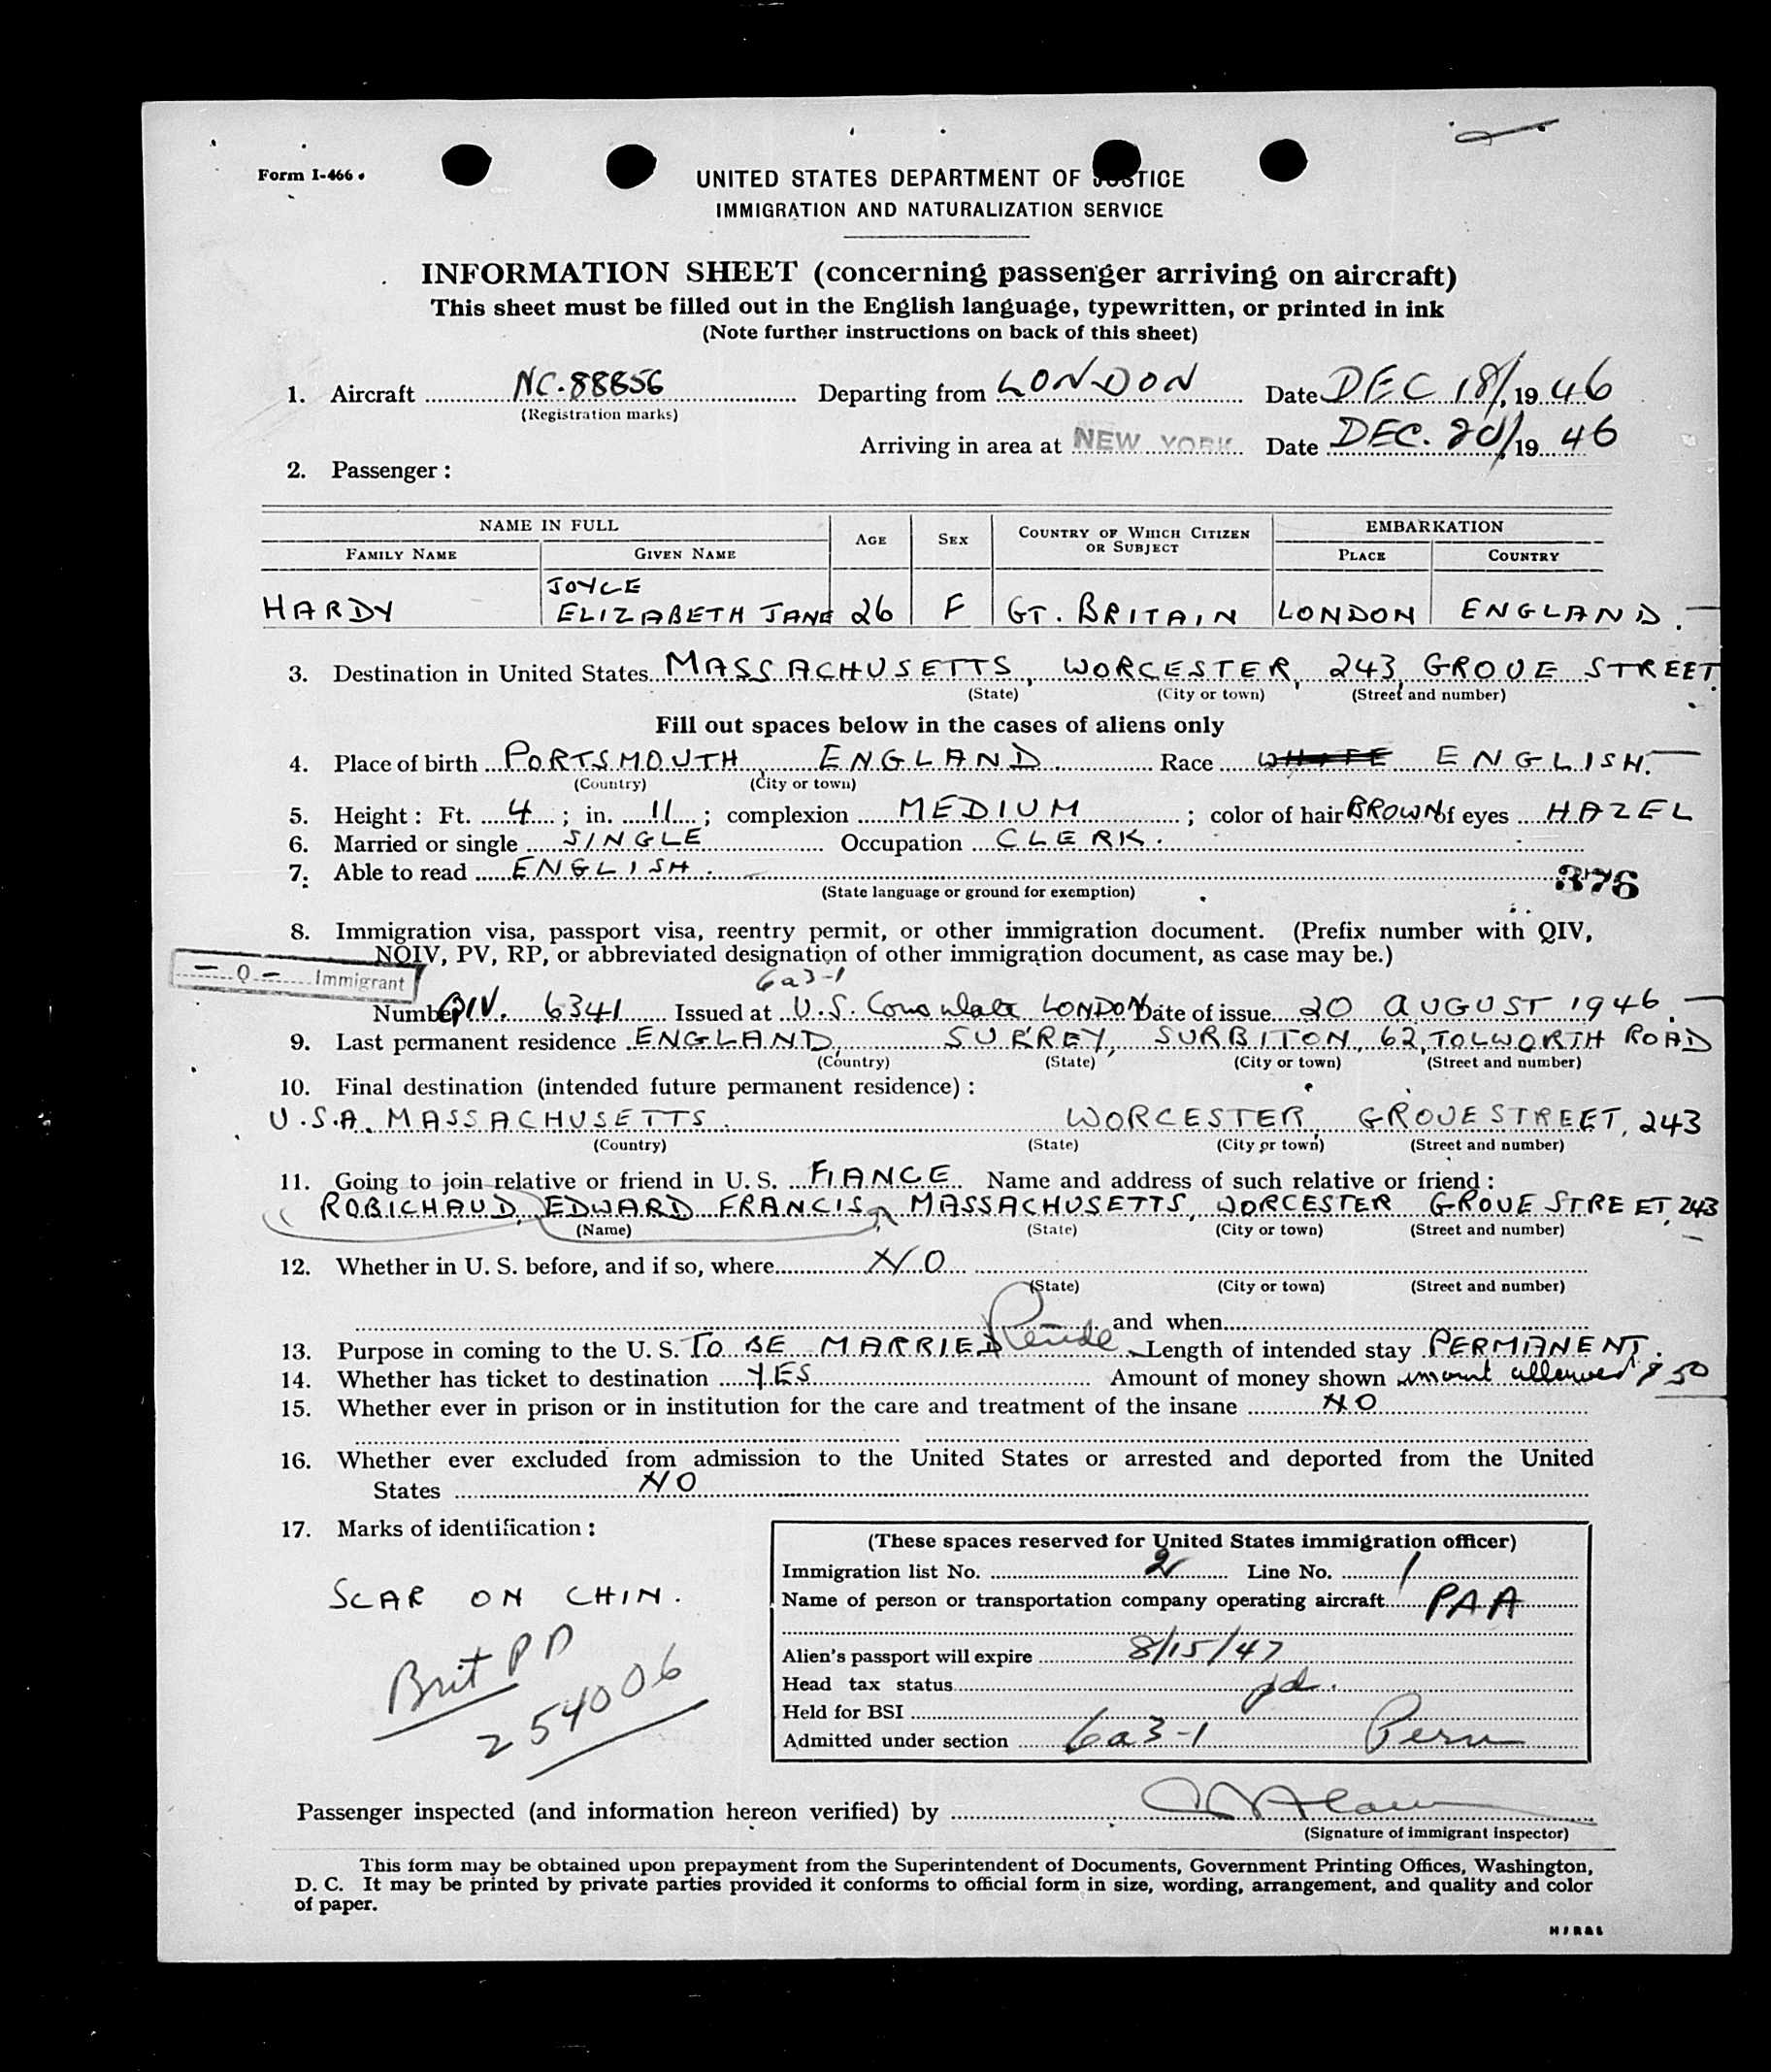 Form I-466
UNITED STATES DEPARTMENT OF JUSTICE
IMMIGRATION AND NATURALIZATION SERVICE
INFORMATION SHEET (concerning passenger arriving on aircraft)
This sheet must be filled out in the English language, typewritten, or printed in ink
(Note further instructions on back of this sheet)
1. Aircraft NC-88856 Departing from LONDON Date DEC 18/, 1946
(Registration marks)
Arriving in area at NEW YORK Date DEC. 20/, 1946
2. Passenger :
NAME IN FULL EMBARKATION
FAMILY NAME GIVEN NAME AGE SEX COUNTRY OF WHICH CITIZEN OR SUBJECT PLACE COUNTRY
JOYCE
HARDY ELIZABETH JANE 26 F GT. BRITAIN LONDON ENGLAND.
3. Destination in United States MASSACHUSETTS, WORCESTER, 243, GROVE STREET.
(State) (City or town) (Street and number)
Fill out spaces below in the cases of aliens only
4. Place of birth PORTSMOUTH, ENGLAND Race WHITE ENGLISH.
(Country) (City or town)
5. Height : Ft. 4 ; in. 11 ; complexion MEDIUM ; color of hair BROWN of eyes HAZEL
6. Married or single SINGLE Occupation CLERK.
7. Able to read ENGLISH.
(State language or ground for exemption)
376
8. Immigration visa, passport visa, reentry permit, or other immigration document. (Prefix number with QIV,
NQIV, PV, RP, or abbreviated designation of other immigration document, as case may be.)
— Q — Immigrant
6a3-1
Number QIV. 6341 Issued at U.S. Consulate LONDON Date of issue 20 AUGUST 1946.
9. Last permanent residence ENGLAND, SURREY, SURBITON, 62, TOLWORTH ROAD
(Country) (State) (City or town) (Street and number)
10. Final destination (intended future permanent residence) :
U.S.A. MASSACHUSETTS. WORCESTER, GROVE STREET, 243
(Country) (State) (City or town) (Street and number)
11. Going to join relative or friend in U. S. FIANCE Name and address of such relative or friend :
ROBICHAUD, EDWARD FRANCIS, MASSACHUSETTS, WORCESTER GROVE STREET, 243
(Name) (State) (City or town) (Street and number)
12. Whether in U. S. before, and if so, where NO
(State) (City or town) (Street and number)
and when
13. Purpose in coming to the U. S. TO BE MARRIED Length of intended stay PERMANENT.
14. Whether has ticket to destination YES Amount of money shown amount allowed $50
15. Whether ever in prison or in institution for the care and treatment of the insane NO
16. Whether ever excluded from admission to the United States or arrested and deported from the United
States NO
17. Marks of identification :
SCAR ON CHIN.
Brit PP
254006
(These spaces reserved for United States immigration officer)
Immigration list No. 2 Line No. 1
Name of person or transportation company operating aircraft PAA
Alien's passport will expire 8/15/47
Head tax status pd.
Held for BSI
Admitted under section 6a3-1 Perm
Passenger inspected (and information hereon verified) by
(Signature of immigrant inspector)
This form may be obtained upon prepayment from the Superintendent of Documents, Government Printing Offices, Washington,
D. C. It may be printed by private parties provided it conforms to official form in size, wording, arrangement, and quality and color
of paper.